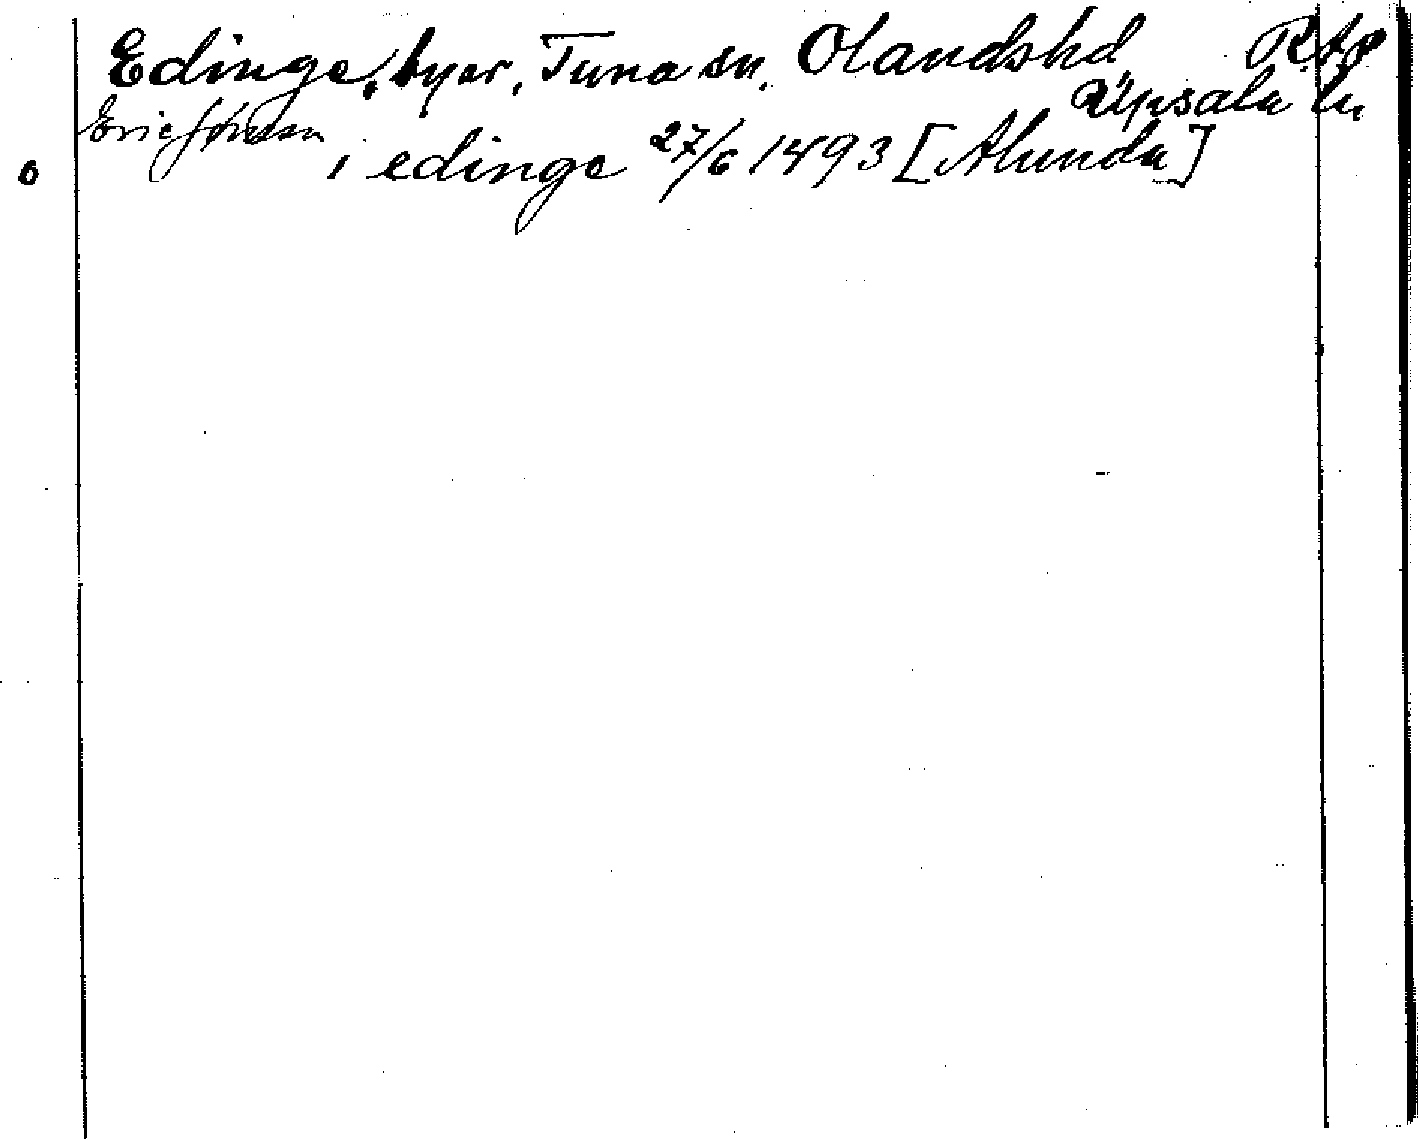 Edinge, byar, Tuna sn. Olandshd RAp
Upsala län
Eric Jönsson i edinge 27/6 1493 [Alunda]